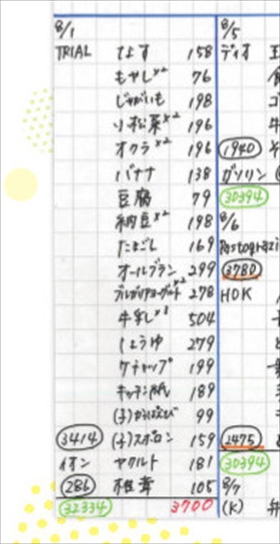 8/1
TRIAL なす 158
もやし×2 76
じゃがいも 198
小松菜×2 196
オクラ×2 196
バナナ 138
豆腐 79
納豆×2 198
たまご 169
オールブラン 299
ブルガリアヨーグルト×2 278
牛乳×3 504
しょうゆ 279
ケチャップ 199
キッチン紙 189
99
3414 (子)スポロン 159
イオン ヤクルト 181
286 椎茸 105
32334 3700
8/5
ディオ
1940
ガソリン
30394
8/6
3780
HOK
2475
30394
8/7
(K)